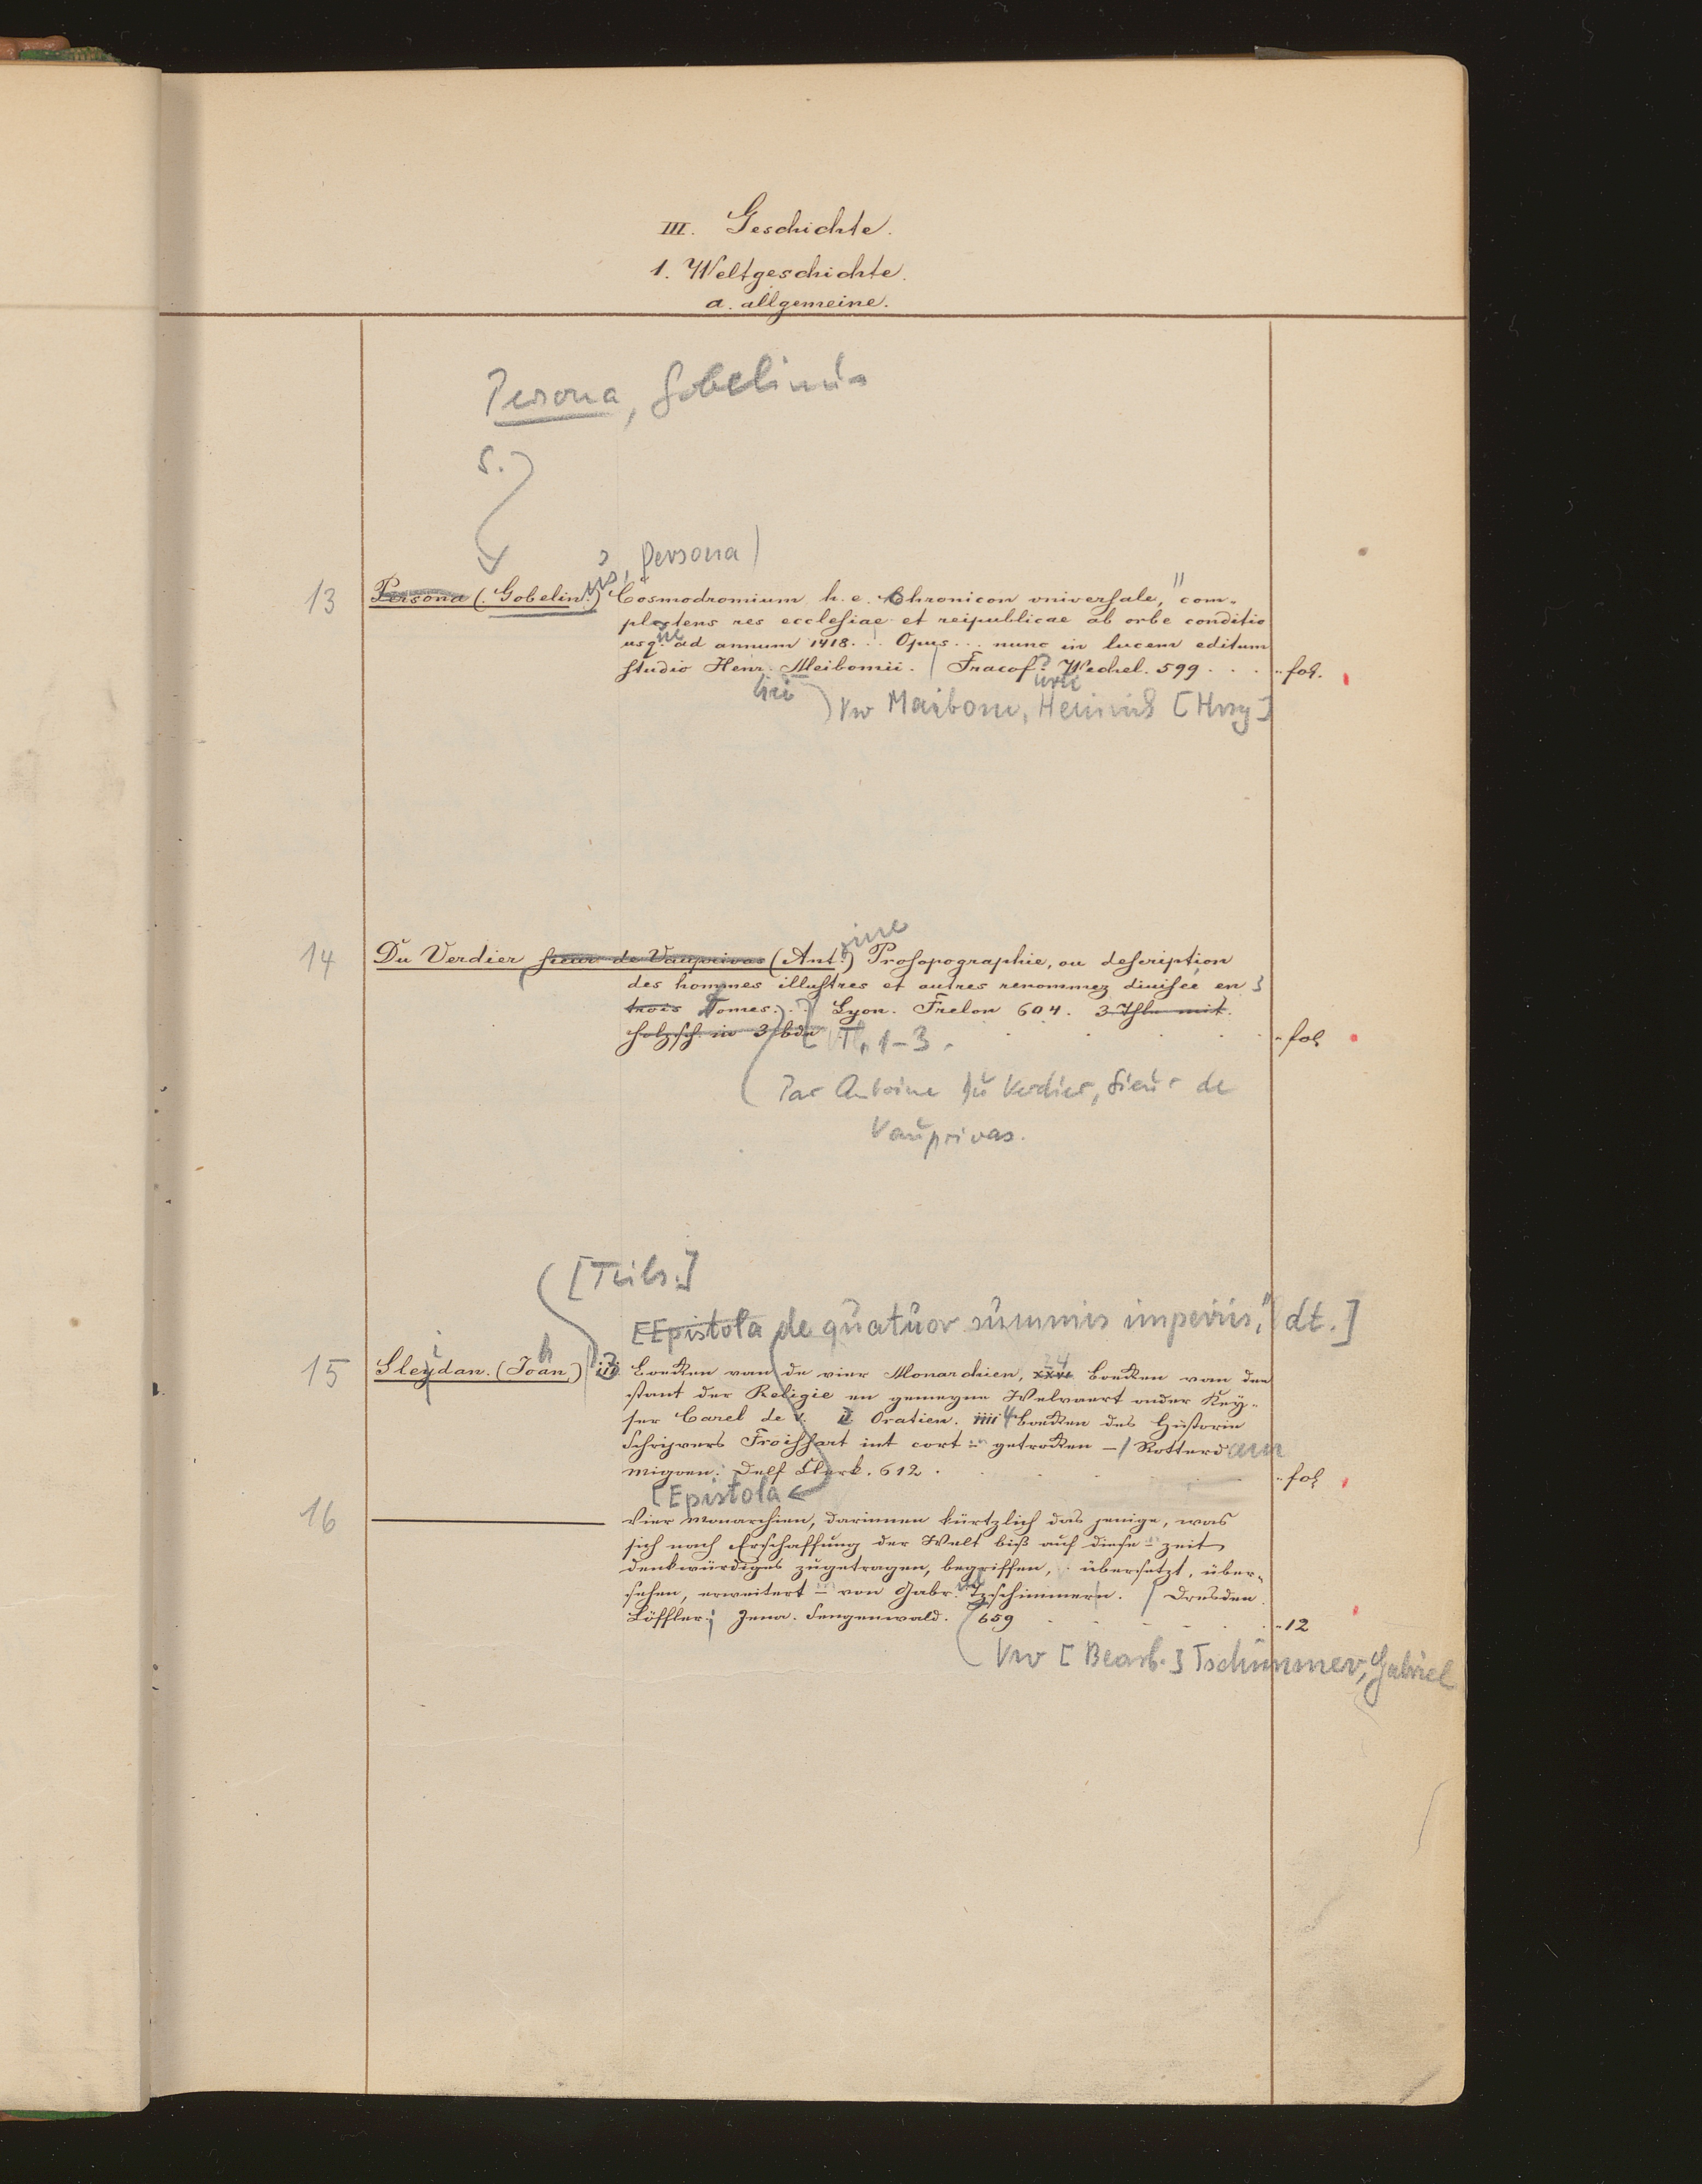 III. Geschichte.
1. Weltgeschichte.
a. allgemeine.
Persona, Gobelinus
s.
us, Persona
13 Persona (Gobelin.) Cosmodromium h. e. Chronicon vniversale, com-
plectens res ecclesiae et reipublicae ab orbe conditio
usq. ad annum 1418... Opus... nunc in lucem editum
studio Henr. Meibomii. Fracof. Wechel. 599 . . . .. fol.
Vw Maibom, Heinrich [Hrsg]
zine
14 Du Verdier sieur de Vauprivas (Ant.) Prosopographie, ou description
des hommes illustres et autres renommez divisée en 3
trois Tomes... Lyon. Frelon 604. 3 Thle mit
holzsch. in 3 bdn [Tl. 1-3. .. fol
Par Antoine Du Verdier, Sieur de
Vauprivas.
[Teils.]
[Epistola de quatuor summis imperiis, dt.]
15 Sleydan. (Joan) iii 3 boecken van de vier Monarchien, xxvi 24 boecken van den
stant der Religie en gemeyne Welvaert onder Key-
ser Carel de V. II Oratien. iiii 4 boecken des Historie
Schrijvers Froissart int cort getrocken – Rotterdam
migoen. Delf Clerk. 612 . .. fol
[Epistola
16 Vier Monarchien, darinnen kürtzlich das jenige, was
sich nach Erschaffung der Welt biß auf diese zeit
denkwürdiges zugetragen, begriffen, übersetzt, über-
sehen, erweitert von Gabr. Tzschimmern. Dresden
Löffler; Jena. Sengenwald. 659 .. 12
Vw [Bearb.] Tschimmer, Gabriel